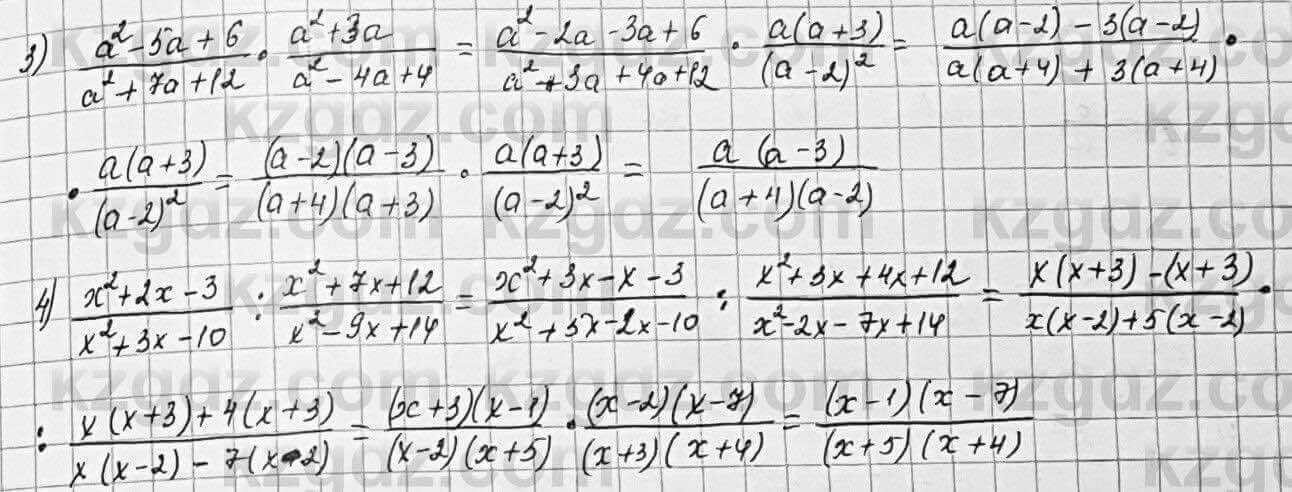 3) (a² - 5a + 6)/(a² + 7a + 12) · (a² + 3a)/(a² - 4a + 4) = (a² - 2a - 3a + 6)/(a² + 3a + 4a + 12) · (a(a+3))/((a-2)²) = (a(a-2) - 3(a-2))/(a(a+4) + 3(a+4)) ·
· (a(a+3))/((a-2)²) = ((a-2)(a-3))/((a+4)(a+3)) · (a(a+3))/((a-2)²) = (a(a-3))/((a+4)(a-2))
4) (x² + 2x - 3)/(x² + 3x - 10) : (x² + 7x + 12)/(x² - 9x + 14) = (x² + 3x - x - 3)/(x² + 5x - 2x - 10) : (x² + 3x + 4x + 12)/(x² - 2x - 7x + 14) = (x(x+3) - (x+3))/(x(x-2) + 5(x-2)) ·
: (x(x+3) + 4(x+3))/(x(x-2) - 7(x-2)) = ((x+3)(x-1))/((x-2)(x+5)) · ((x-2)(x-7))/((x+3)(x+4)) = ((x-1)(x-7))/((x+5)(x+4))
kzgdz.com